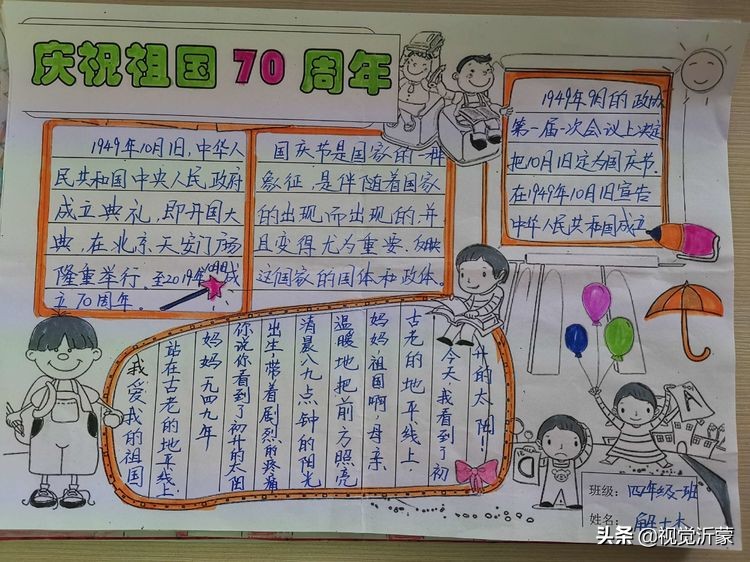 庆祝祖国70周年
1949年10月1日,中华人
民共和国中央人民政府
成立典礼,即开国大
典,在北京天安门广场
隆重举行。至2019年10月1日成
立70周年。
国庆节是国家的一种
象征,是伴随着国家
的出现而出现的,并
且变得尤为重要,反映
这个国家的国体和政体。
1949年9月的政协
第一届一次会议上决定
把10月1日定为国庆节,
在1949年10月1日宣告
中华人民共和国成立
我爱我的祖国
站在古老的地平线上,
妈妈一九四九年
你说你看到了初升的太阳
出生,带着剧烈的疼痛
清晨八九点钟的阳光
温暖地把前方照亮
妈妈,祖国啊,母亲
古老的地平线上,
今天,我看到了初
升的太阳!
A
班级:四年级一班
姓名:解士杰
头条@视觉沂蒙